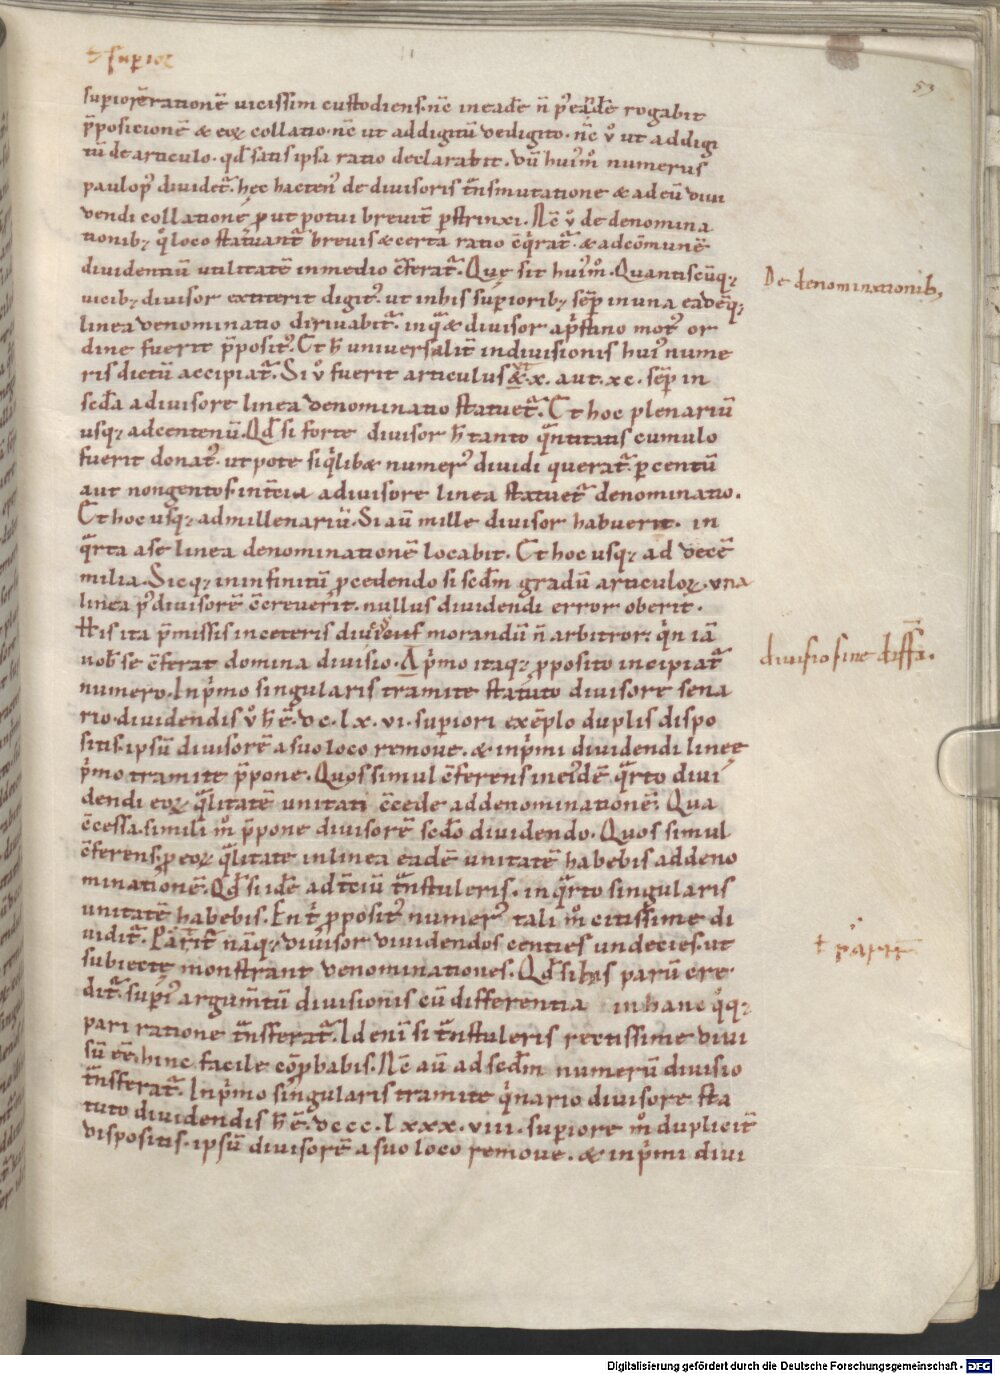 superiorē rationē vicissim custodiens. nc̄ in eadē n̄ p̄ eadē rogabit
p̄posicionē & eoꝝ collatio. nc̄ ut ad digitū de digito. nc̄ v̊ ut ad digi
tū de articulo. qd̄ satis ipsa ratio declarabit. dū hui'm̊ numerus
paulo p' dividet᷑. hec hacten' de divisoris t᷑nsmutatione & ad eū divi
dendi collatione, ꝓ ut potui brevit̄ ꝑstrinxi. Nc̄ v̊ de denomina
tionibꝫ q̊ loco statuant᷑ brevis & certa ratio c̄q̊rat᷑. & ad cōmunē
dividentiū utilitatē in medio c̄ferat᷑. Quę sit hui'm̊. Quantiscūqꝫ
De denominationibꝫ
vicibꝫ divisor extiterit digit'. ut in his superioribꝫ sēp in una eadēqꝫ
linea denominatio dirivabit᷑. in qua & divisor a p̊stino mot' or
dine fuerit p̄posit'. Et h̄ universalit̄ in divisionis hui' nume
ris dictū accipiat᷑. Si v̊ fuerit articulus & .x. aut .xc. sēp in
scd̄a a divisore linea denominatio statuet᷑. Et hoc plenariū
usqꝫ ad centenū. Qd̄ si forte divisor h̄ tanto quantitatis cumulo
fuerit donat'. ut pote si q̊libæ numer' dividi querat᷑ ꝑ centū
aut nongentos. in t̄cia a divisore linea statuet᷑ denominatio.
Et hoc usqꝫ ad millenariū. Si aū mille divisor habuerit. in
quarta a se linea denominationē locabit. Et hoc usqꝫ ad decē
milia. Sicqꝫ in infinitū ꝓcedendo si scd̄m gradū articuloꝝ. una
linea p' divisorē c̄creverit. nullus dividendi error oberit.
His ita p̄missis in ceteris diucius morandū n̄ arbitror. q̊n iā
nob' se c̄ferat domina divisio. A p̊mo itaqꝫ ꝓposito incipiat᷑
divisio sine diff̄a.
numero. In p̊mo singularis tramite statuto divisore sena
rio. dividendis v̊ h̄ ē. dc. lx. vi. superiori exēplo duplis dispo
sitis. ipsū divisorē a suo loco remove. & in p̊mi dividendi lineę
p̊mo tramite p̄pone. Quos simul c̄ferens incidē quarto divi
dendi eoꝝ qualitatē unitati c̄cede ad denominationē. Qua
c̄cessa. simili m̊ p̄pone divisorē scd̄o dividendo. Quos simul
c̄ferens. ꝓ eoꝝ qualitate in linea eadē unitatē habebis ad deno
minationē. Qd̄ si idē ad t̄ciū t᷑nstuleris. in quarto singularis
unitatē habebis. En t̊ ꝓposit' numer' tali m̊ citissime di
vidit᷑. Parit̄ nāqꝫ divisor dividendos centies undecies. ut
† parit̄
subiecte monstrant denominationes. Qd̄ si his parū cre
dit᷑. superi' argum̄tū divisionis cū differentia in hanc q̊qꝫ
pari ratione t᷑nsferat᷑. Id eni si t᷑nstuleris rectissime divi
sū ēē. hinc facile cōprobabis. Nc̄ aū ad scd̄m numerū divisio
t᷑nsferat᷑. In p̊mo singularis tramite q̊nario divisore sta
tuto dividendis h̄ ē. dccc. lxxx. viii. superiore m̊ duplicit̄
dispositis. ipsū divisorē a suo loco remove. & in p̊mi divi
† superior
53
Digitalisierung gefördert durch die Deutsche Forschungsgemeinschaft - DFG